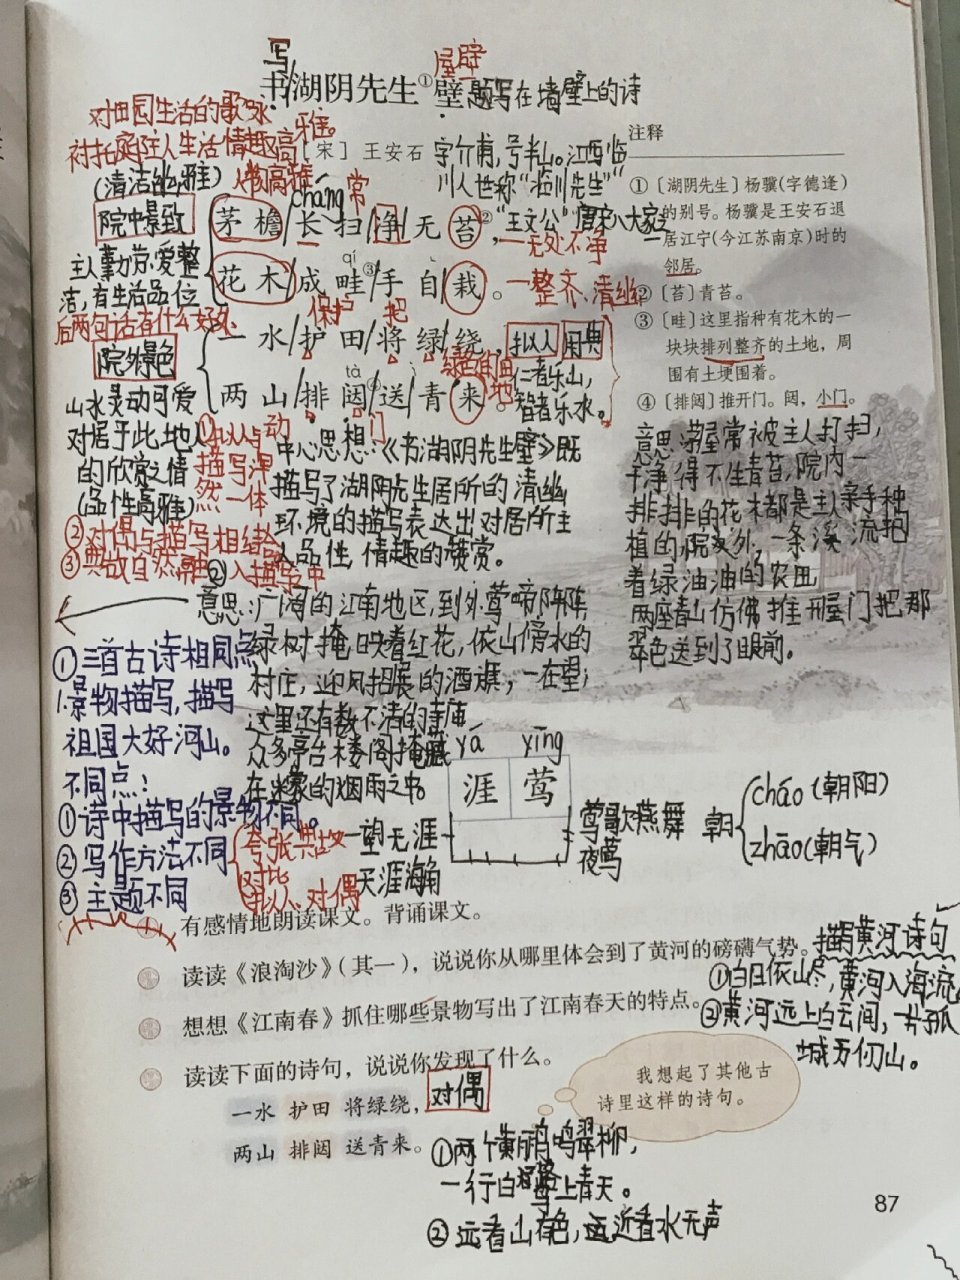 写
屋壁
书湖阴先生①壁 题写在墙壁上的诗
对田园生活的歌咏
衬托庭主人生活情趣高雅。
(清洁幽雅) 人物高雅
[宋] 王安石
字介甫,号半山。江西临
川人世称“临川先生”
“王文公”唐宋八大家
cháng 常
院中景致
茅檐/长扫/净无苔②,
一无处不净
主人勤劳、爱整
洁,有生活品位
qí
花木/成畦③/手自栽。
一整齐、清幽
后两句话有什么好处
保护 把
院外景色
一水/护田/将绿/绕,
拟人 用典
绿色的田地
仁者乐山,
智者乐水。
tà
两山/排闼④/送青来。
门
山水灵动可爱
对居于此地人
的欣赏之情
(品性高雅)
①拟人与动
描写浑
然一体
②对偶与描写相结合
③典故自然融入描写中
中心思想:《书湖阴先生壁》既
描写了湖阴先生居所的清幽
环境的描写表达出对居所主
人品性、情趣的赞赏。
注释
①〔湖阴先生〕杨骥(字德逢)
的别号。杨骥是王安石退
居江宁(今江苏南京)时的
邻居。
②〔苔〕青苔。
③〔畦〕这里指种有花木的一
块块排列整齐的土地,周
围有土埂围着。
④〔排闼〕推开门。闼,小门。
意思:茅屋常被主人打扫,
干净得不生青苔,院内一
排排的花木都是主人亲手种
植的,院子外,一条溪流把
着绿油油的农田
两座青山仿佛推开屋门把那
翠色送到了眼前。
②
意思:广阔的江南地区,到外莺啼阵阵
绿树掩映着红花,依山傍水的
村庄,迎风招展的酒旗,一在望;
这里还有数不清的寺庙
众多亭台楼阁掩藏
在迷蒙的烟雨之中。
①三首古诗相同点
1.景物描写,描写
祖国大好河山。
不同点:
①诗中描写的景物不同。
②写作方法不同
③主题不同
夸张 典故
对比
拟人、对偶
yá yīng
涯 莺
一望无涯
天涯海角
莺歌燕舞
夜莺
朝
cháo(朝阳)
zhāo(朝气)
有感情地朗读课文。背诵课文。
读读《浪淘沙》(其一),说说你从哪里体会到了黄河的磅礴气势。
描写黄河诗句
①白日依山尽,黄河入海流
②黄河远上白云间,一片孤
城万仞山。
想想《江南春》抓住哪些景物写出了江南春天的特点。
读读下面的诗句,说说你发现了什么。
一水 护田 将绿绕,
对偶
两山 排闼 送青来。
我想起了其他古
诗里这样的诗句。
①两个黄鹂鸣翠柳,
一行白鹭上青天。
②远看山有色,近看水无声
87